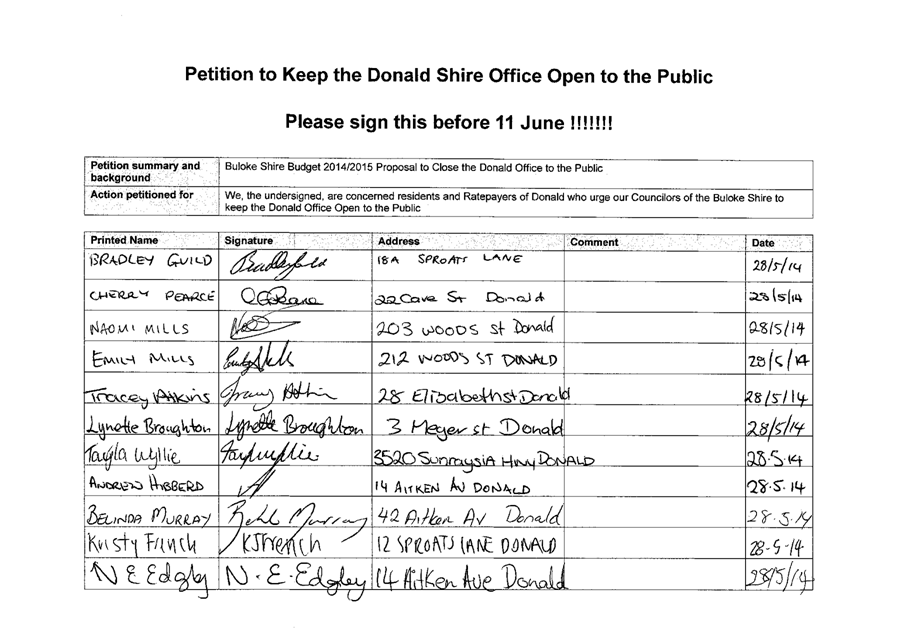 Petition to Keep the Donald Shire Office Open to the Public
Please sign this before 11 June !!!!!!!
Petition summary and background Buloke Shire Budget 2014/2015 Proposal to Close the Donald Office to the Public
Action petitioned for We, the undersigned, are concerned residents and Ratepayers of Donald who urge our Councilors of the Buloke Shire to
keep the Donald Office Open to the Public
Printed Name Signature Address Comment Date
BRADLEY GUILD 18A SPROATS LANE 28/5/14
CHERRY PEARCE 22 Cave St Donald 28/5/14
NAOMI MILLS 203 WOODS St Donald 28/5/14
EMILY MILLS 212 WOODS ST DONALD 28/5/14
Tracey Atkins 28 Elisabeth st Donald 28/5/14
Lynette Broughton Lynette Broughton 3 Meyer st Donald 28/5/14
Tayla Wyllie 3520 Sunraysia Hwy DONALD 28.5.14
ANDREW HIBBERD 14 AITKEN AV DONALD 28.5.14
BELINDA MURRAY Murray 42 Aitken Av Donald 28.5.14
Kristy Ffrench KJffrench 12 SPROATS LANE DONALD 28-5-14
N E Edgley N. E. Edgley 14 Aitken Ave Donald 28/5/14